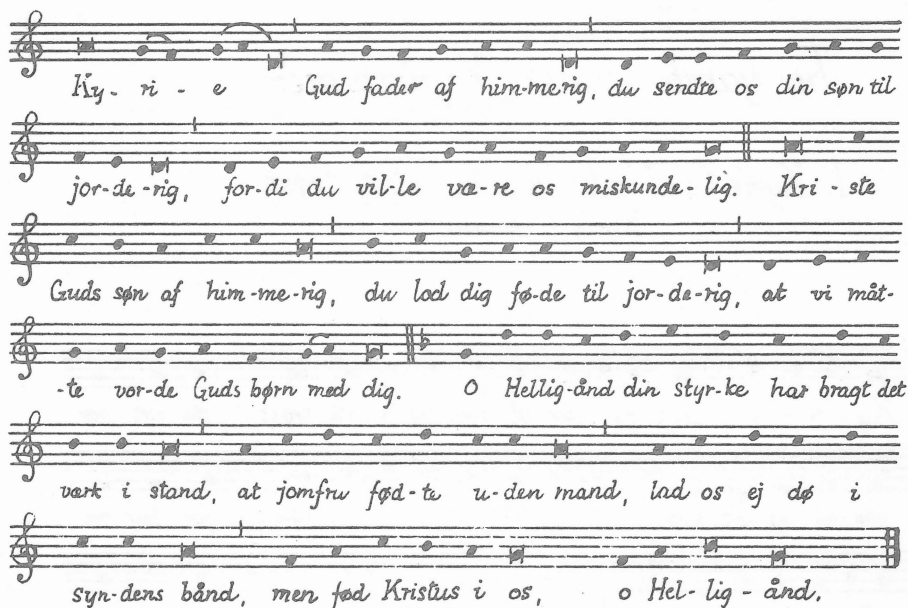 Ky - ri - e Gud fader af him-merig, du sendte os din søn til
jor-de-rig, for-di du vil-le væ-re os miskunde-lig. Kri-ste
Guds søn af him-me-rig, du lod dig fø-de til jor-de-rig, at vi måt-
-te vor-de Guds børn med dig. O Hellig-ånd din styr-ke har bragt det
værk i stand, at jomfru fød-te u-den mand, lad os ej dø i
syn-dens bånd, men fød Kristus i os, o Hel-lig-ånd.